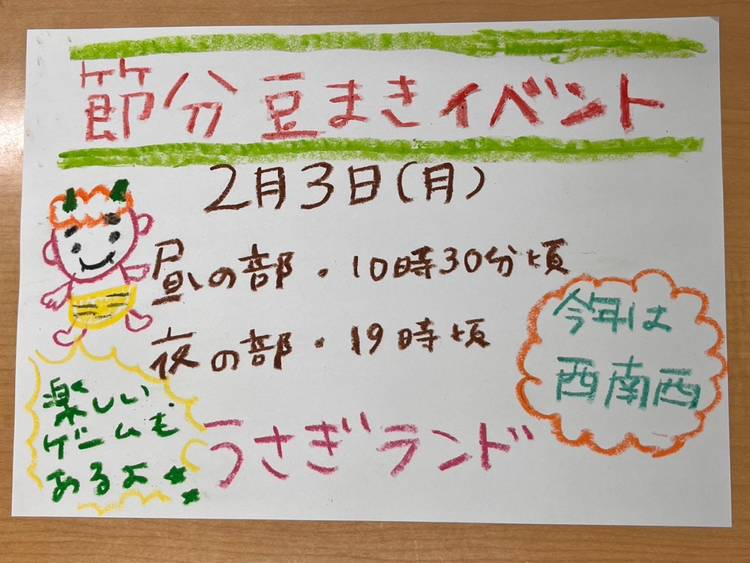 節分豆まきイベント
2月3日(月)
昼の部・10時30分頃
夜の部・19時頃
今年は
西南西
楽しい
ゲームも
あるよ
うさぎランド